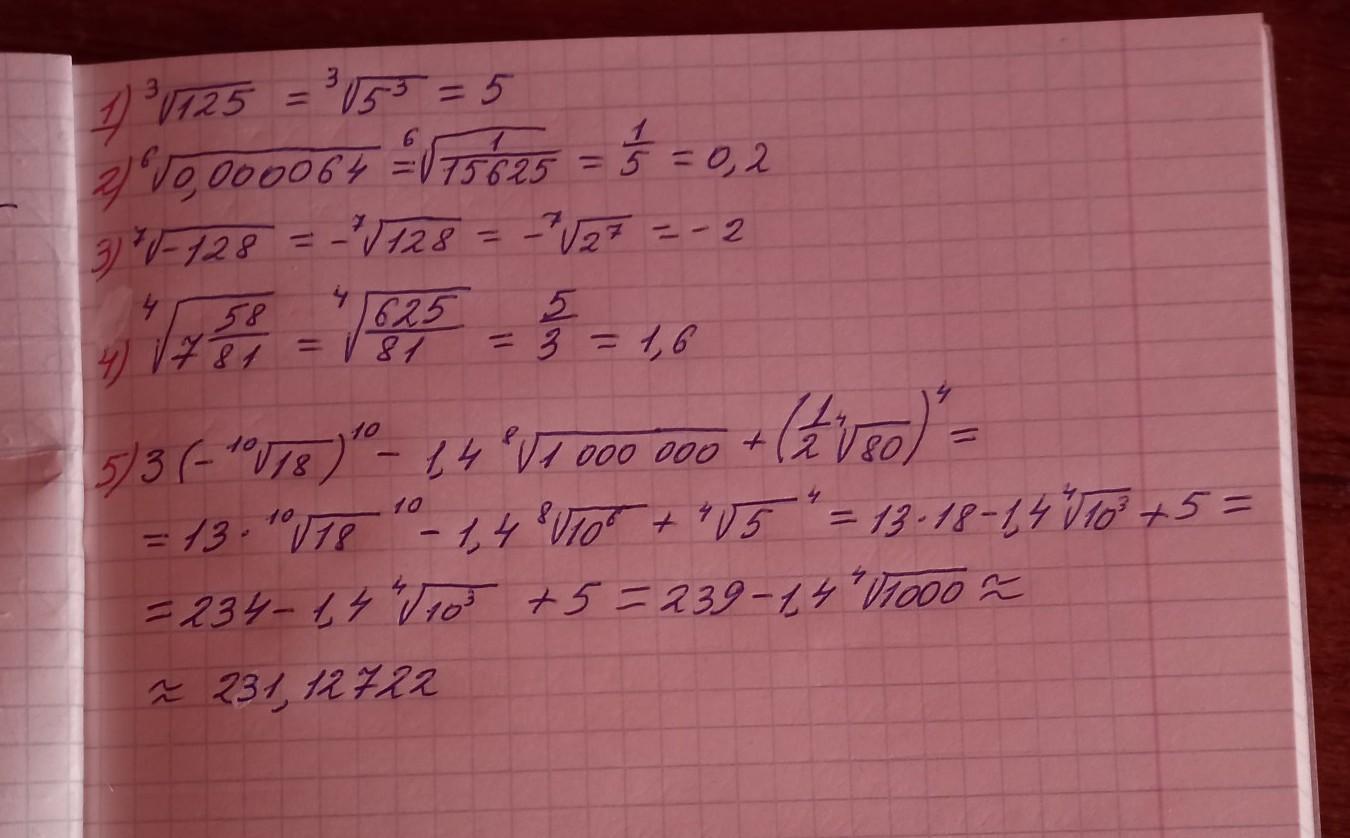 1) ³√125 = ³√5³ = 5
2) ⁶√0,000064 = ⁶√(1/15625) = 1/5 = 0,2
3) ⁷√-128 = -⁷√128 = -⁷√2⁷ = -2
4) ⁴√(7 58/81) = ⁴√(625/81) = 5/3 = 1,6
5) 3(-¹⁰√18)¹⁰ - 1,4 ⁸√1 000 000 + (1/2 ⁴√80)⁴ =
= 13 · ¹⁰√18 ¹⁰ - 1,4 ⁸√10⁶ + ⁴√5 ⁴ = 13 · 18 - 1,4 ⁴√10³ + 5 =
= 234 - 1,4 ⁴√10³ + 5 = 239 - 1,4 ⁴√1000 ≈
≈ 231,12722